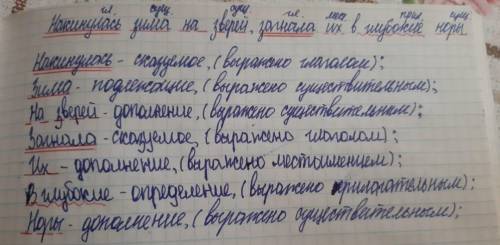 гл. сущ. сущ. гл. мес. прил. сущ.
Накинулась зима на зверей, загнала их в глубокие норы
Накинулась - сказуемое, (выражено глаголом);
Зима - подлежащие, (выражено существительным);
На зверей - дополнение, (выражено существительным);
Загнала - сказуемое, (выражено глаголом);
Их - дополнение, (выражено местоимением);
В глубокие - определение, (выражено прилагательным);
Норы - дополнение, (выражено существительным);